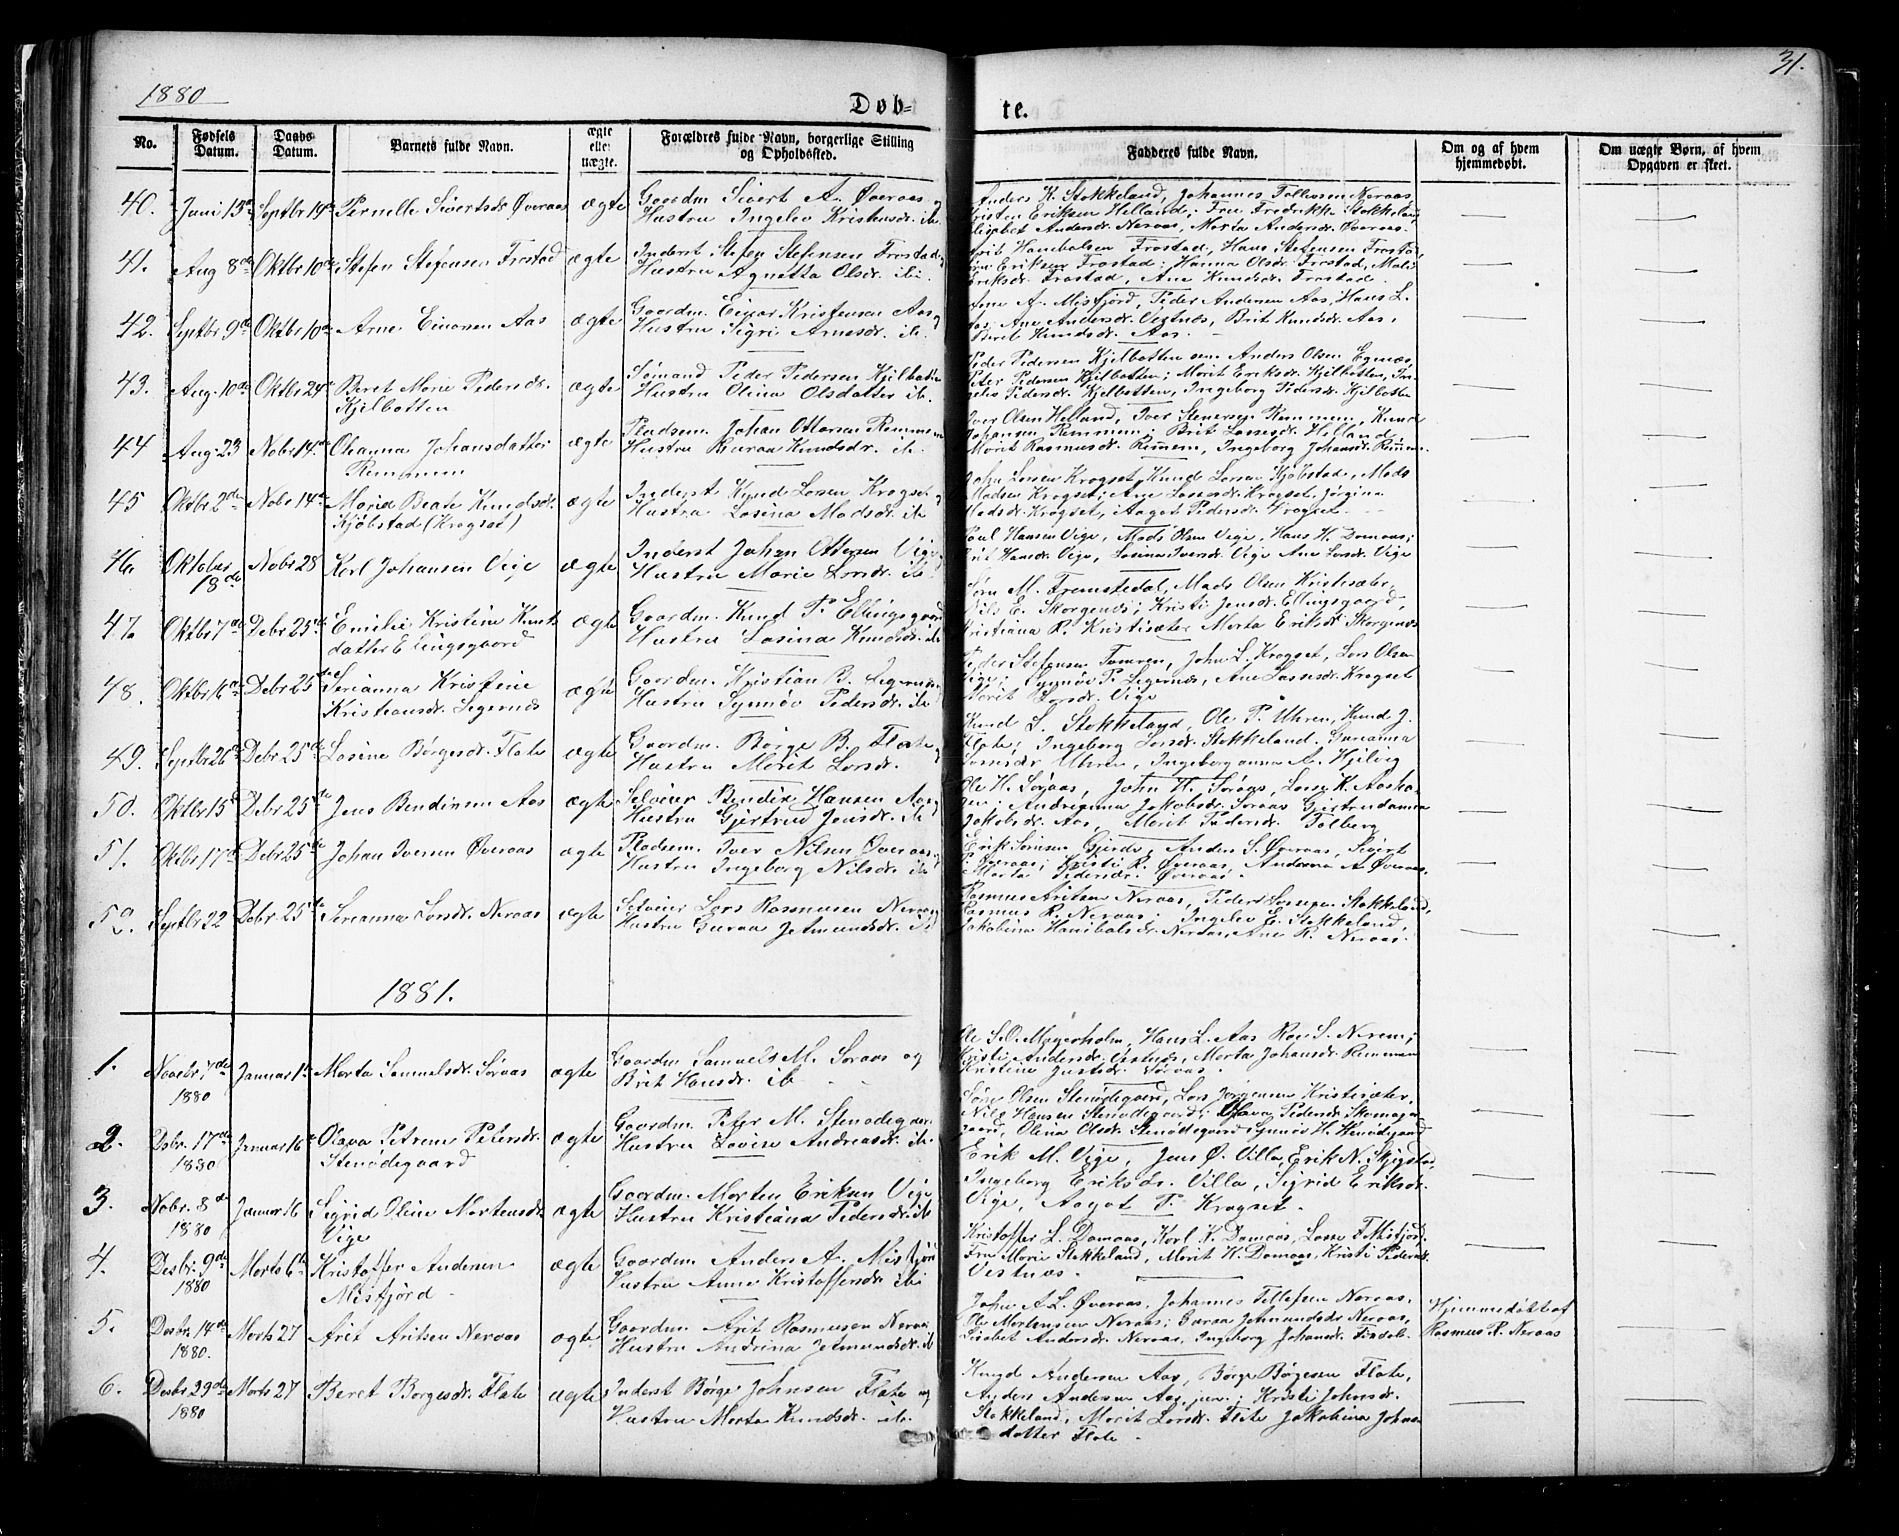 1880
31.
Døb=
te.
No.
Fødsels Datum.
Daabs Datum.
Barnets fulde Navn.
ægte eller uægte.
Forældres fulde Navn, borgerlige Stilling og Opholdssted.
Fadderes fulde Navn.
Om og af hvem hjemmedøbt.
Om uægte Børn, af hvem Opgaven er skeet.
40. Juni 15de Septbr 19de Pernelle Sivertsdr Øveraas ægte Gaardm. Sivert A. Øveraas og
Hustru Ingelev Kristensdr. ib.
Anders K. Stokkeland, Johannes Tollevsen Neraas,
Kristen Eriksen Helland; Fru Fredrikke Stokkeland,
Lisbet Andersdr. Neraas, Marta Andersdr. Øveraas.
41. Aug 8de Oktbr 10de Stefen Stefensen Frostad ægte Inderst Stefen Stefensen Frostad og
Hustru Agnetta Olsdr. ibi.
Hanibalsen Frostad, Hans Stefensen Frostad,
Eriksen Frostad; Hanna Olsdr. Frostad, Mali
Eriksdr. Frostad, Ane Knudsdr. Frostad.
42. Septbr 9de Oktbr 10de Arne Einarsen Aas ægte Gaardm. Einar Kristensen Aas og
Hustru Sigri Arnesdr. ib.
Arne A. Misfjord, Peder Andersen Aas, Hans L.
Aas, Ane Andersdr. Vestnes, Brit Knudsdr. Aas,
Berit Knudsdr. Aas.
43. Aug. 10de Oktbr 24de Beret Marie Pedersdr. ægte Sømand Peder Pedersen Kjelbotten
Kjelbotten
Hustru Olina Olsdatter ib.
Peder Pedersen Kjelbotten sen. Anders Olsen Egenæs,
Peter Pedersen Kjelbotten; Marit Eriksdr. Kjelbotten, In-
gelev Pedersdr. Kjelbotten, Ingeborg Pedersdr. Kjelbotten
44 Aug. 23 Nobr 14de Oleanna Johansdatter ægte Pladsem. Johan Ottersen Remmem
Remmem
Hustru Guraa Knudsdr. ib.
Iver Olsen Helland, Iver Steversen Remmem, Knud
Johansen Remmem; Brit Lassesdr. Helland,
Marit Rasmusdr. Remem, Ingeborg Johansdr. Remem.
45 Oktbr 2den Nobr 14de Marie Beate Knudsdr. ægte Inderst Knud Larsen Kragset og
Kjøbstad (Kragset)
Hustru Lasina Madsdr. ib
John Larsen Kragset, Knud Larsen Kjøbstad, Mads
Madsen Kragset; Ane Lassesdr. Kragset, Jørgina
Madsdr. Kragset, Aagot Pedersdr. Kragset.
46. Oktober 18de Nobr 28 Karl Johansen Vige ægte Inderst Johan Ottersen Vige
Hustru Marie Larsdr. ib.
Poul Hansen Vige, Mads Olsen Vige, Hans H. Damaas;
Brit Hansdr. Vige, Lasina Iversdr. Vige Ane Larsdr. Vige
47. Oktbr 7de Debr 25de Emilie Kristine Knuts- ægte Gaardm. Knud P. Ellingsgaard
datter Ellingsgaard
Hustru Lasina Knudsdr. ib
Jørn M. Fremstedal, Mads Olsen Kristisæter,
Nils E. Skorgenes; Kristi Jensdr. Ellingsgaard,
Kristiana R. Kristisæter Marta Eriksdr. Skorgenes
48. Oktbr 16de Debr 25de Serianna Kristine ægte Gaardm. Kristian B. Segernes
Kristiansdr. Segernes
Hustru Synnøv Pedersdr. ib
Peder Stefensen Tomren, John L. Kragset, Lars Olsen
Vige; Synnøv P. Segernes, Ane Lassesdr. Kragset
Marit Larsdr. Vige
49. Septbr 26de Debr 25de Lasine Børgesdr. Flate ægte Gaardm. Børge B. Flate
Hustru Marit Larsdr.
Knud L. Stokkeland, Ole P. Uhren, Knud J.
Flate; Ingeborg Larsdr. Stokkeland, Gurianna
Uhren, Ingeborganna A. Hjelvig
50. Oktbr 15de Debr 25de Jens Bendixsen Aas ægte Selveier Bendix Hansen Aas og
Hustru Gjertrud Jensdr. ib
Ole H. Søraas, John H. Søraas, Lasse K. Aasha-
gen; Andreanna Jakobsdr. Søraas Gjertrudanna
Jakobsdr. Aas, Marit Pedersdr. Tolberg
51. Oktbr 17de Debr 25de Johan Iversen Øveraas ægte Pladsem. Iver Nilsen Øveraas
Hustru Ingeborg Nilsdr. ib
Erik Gjerde, Anders S. Øveraas, Sivert
P. Øveraas; Kristi R. Øveraas, Anderea A. Øveraas,
Marta Pedersdr. Øveraas.
52. Septbr 22 Debr 25de Serianna Larsdr. Neraas ægte Selveier Lars Rasmusen Neraas
Hustru Guraa Jetmundsdr. ib
Rasmus Aritsen Neraas, Peder Larsen Stokkeland,
Rasmus R. Neraas; Ingelev E. Stokkeland,
Jakobina Hanibalsdr. Neraas, Ane R. Neraas.
1881.
1. Novebr. 7de 1880 Januar 1ste Marta Samuelsdr. Søraas ægte Gaardm. Samuel M. Søraas og
Brit Hansdr. ib.
Ole S. O. Magerholm, Hans L. Aas Roe S. Nerem;
Kristi Andersdr. Vestnæs, Marta Johansdr. Remmem
Kristine Justsdr. Søraas.
2. Dsbr. 17de 1880 Januar 16 Olava Petrine Petersdr. ægte Gaardm. Peter M. Stenødegaard
Stenødegaard
Hustru Lovise Andreasdr. ib.
Søren Olsen Stenødegaard, Lars Jørgensen Kristisæter,
Nils Hansen Stenødegaard; Olava Pedersdr. Skomager-
gaard, Olina Olsdr. Stenødegaard, Synnøv H. Stenødegaard
3. Nobr. 8de 1880 Januar 16 Sigrid Oline Mortensdr. ægte Gaardm. Morten Eriksen Vige
Vige
Hustru Kristiana Pedersdr. ib
Erik M. Vige, Jens Ø. Villa, Erik N. Skjegstad,
Ingeborg Eriksdr. Villa, Sigrid Eriksdr.
Vige, Aagot P. Kragset.
4. Desbr. 9de 1880 Marts 6te Kristoffer Andersen ægte Gaardm. Anders A. Misfjord
Misfjord.
Hustru Anne Kristoffersdr. ibi
Kristoffer L. Damaas, Karl K. Damaas, Lasse Misfjord,
Fru Marie Stokkeland, Marit K. Damaas, Kristi Pedersdr.
Vestnæs.
5. Desbr. 14de 1880. Marts 27 Arit Aritsen Neraas ægte Gaardm. Arit Rasmusen Neraas
Hustru Andrina Jetmundsdr. ib
John A. L. Øveraas, Johannes Tollefsen Neraas,
Ole Mortensen Neraas; Guraa Jetmundsdr Neraas,
Lisabet Andersdr. Neraas, Ingeborg Johansdr. Tindal.
Hjemmedøbt af
Rasmus R. Neraas
6. Desbr. 29de 1880 Marts 27 Beret Børgesdr. Flate ægte Inderst Børge Johnsen Flate og
Hustru Marta Knudsdr. ib.
Knud Andersen Aas, Børge Børgesen Flate,
Anders Andersen Aas, jun.; Kristi Johnsdr.
Stokkeland, Marit Larsdr. Flate Jakobina Johns-
datter Flate.